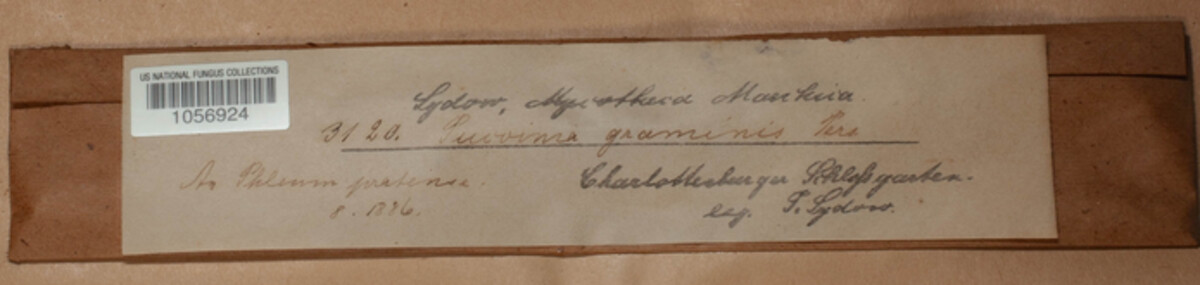 US NATIONAL FUNGUS COLLECTIONS
1056924
Sydow, Mycotheca Marchica.
3120. Puccinia graminis Pers
An Phleum pratense.
8. 1886.
Charlottenburger Schloßgarten.
leg. P. Sydow.